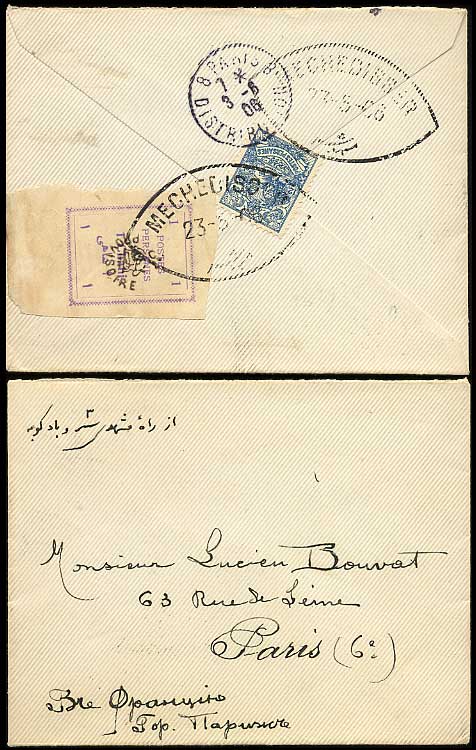 8 PARIS 8
7 *
3 - 6
06
DISTRIB
MECHEDISSER
23-5-06
MECHEDISS
23-
1 1
POSTES
PERSANES
PROVISOIRE
1 1
از راه مشهدی سر و بادکوبه
۳
Monsieur Lucien Bouvat
63 Rue de Seine
Paris (6e)
Въ Францiю
Гор. Парижъ